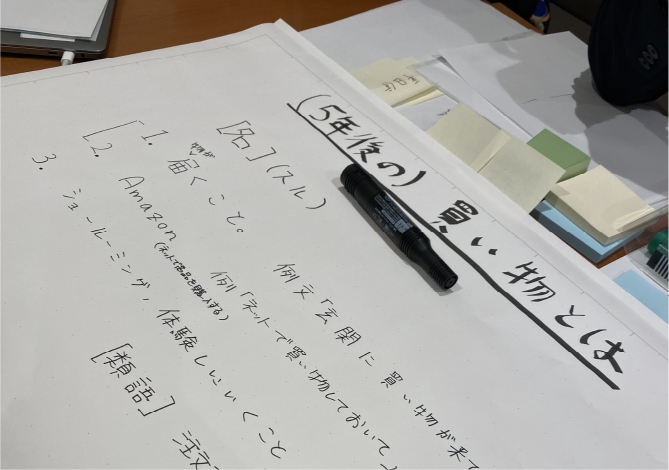 (5年後の)買い物とは
[名](スル)
1. 物が届くこと。 例文「玄関に買い物が来て
2. Amazon(ネットで商品を購入する) 例「ネットで買い物しておいて
3. ショールーミング、体験しにいくこと
[類語] 注文